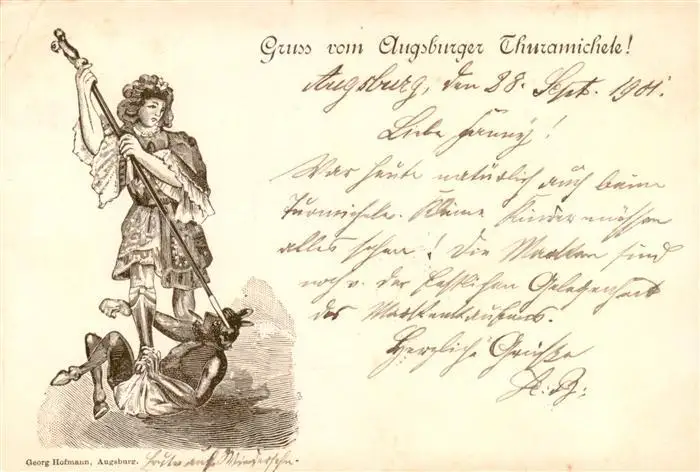 Gruss vom Augsburger Thuramichele!
Augsburg, den 28. Sept. 1901.
Liebe Fanny!
War heute natürlich auch beim
Turmichele. Kleine Kinder müssen
alles sehen! Die Marken sind
noch v. der festlichen Gelegenheit
des Markenkaufens.
Herzliche Grüße
Georg Hofmann, Augsburg. auf Wiedersehn.